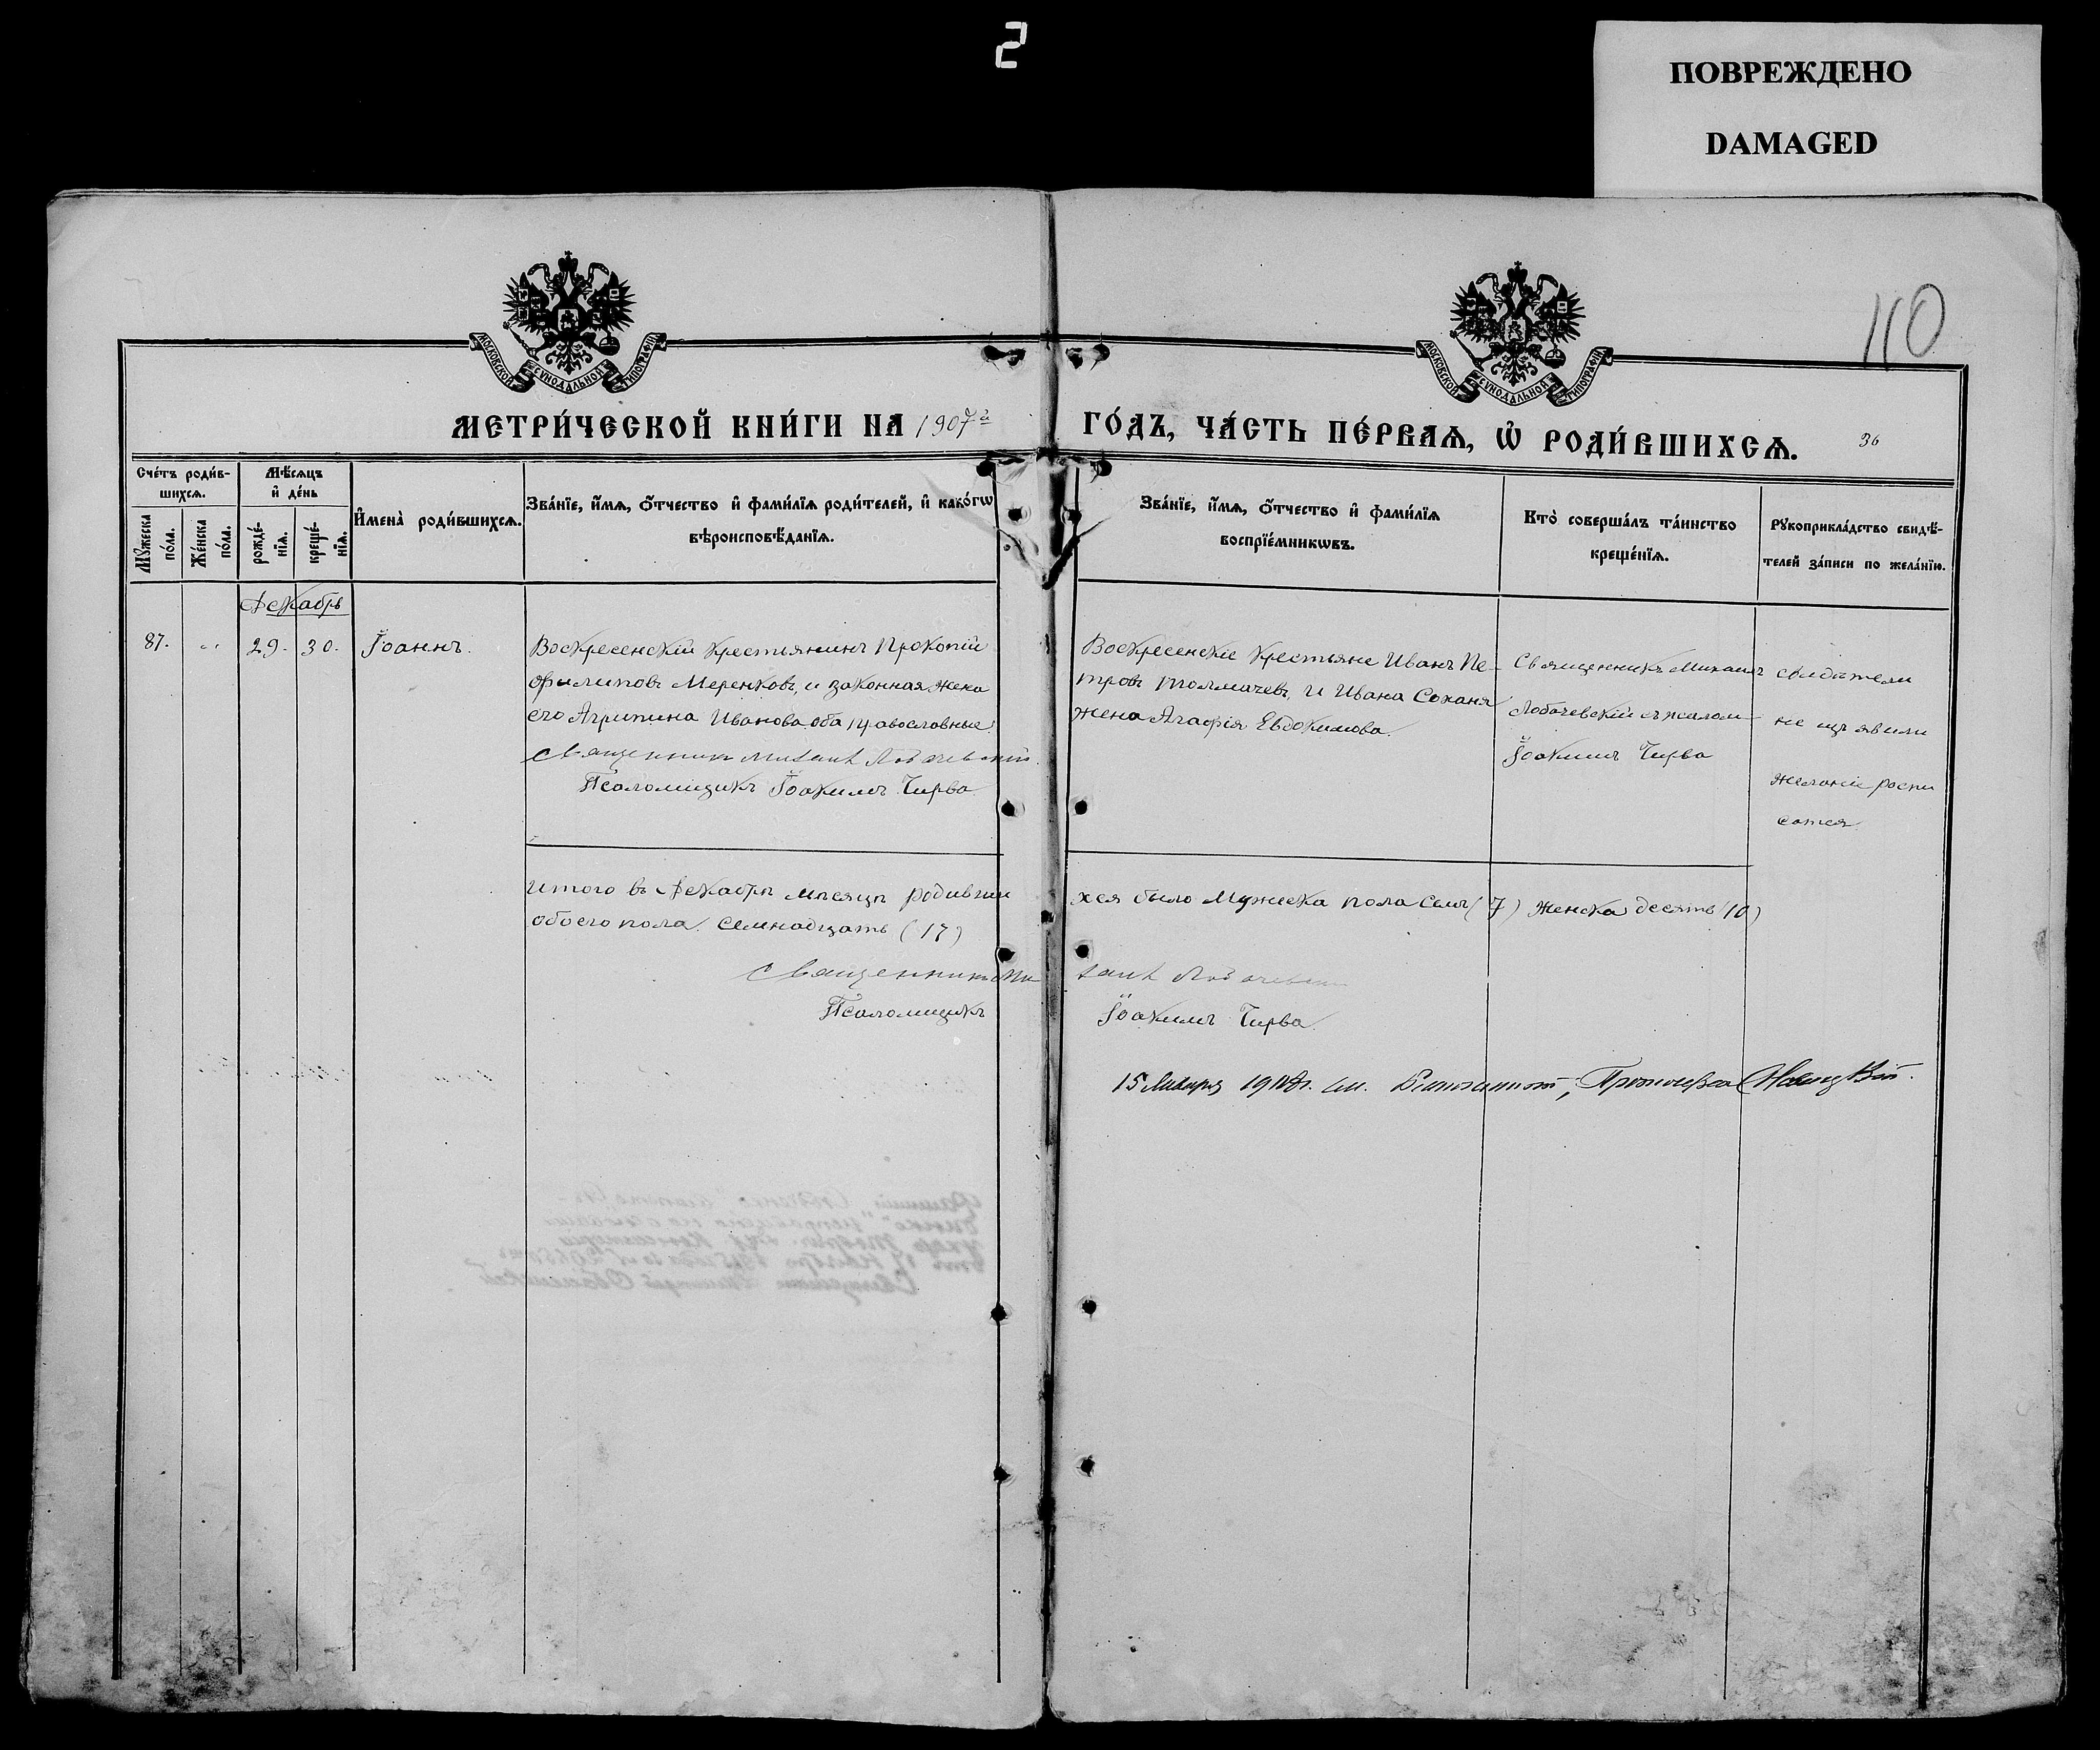 2
ПОВРЕЖДЕНО
DAMAGED
110
МОСКОВСКОЙ СѴНОДАЛЬНОЙ ТИПОГРАФІИ
МОСКОВСКОЙ СѴНОДАЛЬНОЙ ТИПОГРАФІИ
МЕТРИ́ЧЕСКОЙ КНИ́ГИ НА 1907й
ГО́ДЪ, ЧА́СТЬ ПЕ́РВАЯ, Ѡ РОДИ́ВШИХСЯ.
36
Сче́тъ роди́в-
шихся.
Мѣ́сяцъ
и҆ де́нь
Мꙋжеска
по́ла.
Же́нска
по́ла.
рожде́-
нїя.
креще́-
нїя.
И҆мена̀ роди́вшихся.
Зва́нїе, и҆́мя, ѻ҆́тчество и҆ фами́лїя роди́телей, и҆ како́гѡ
вѣроисповѣ́данїя.
Зва́нїе, и҆́мя, ѻ҆́тчество и҆ фами́лїя
воспрїе́мникѡвъ.
Кто̀ соверша́лъ та́инство
креще́нїя.
Рꙋкоприкла́дство свидѣ́-
телей за́писи по жела́нїю.
Декабрь
87. „ 29. 30. Іоаннъ.
Воскресенскій крестьянинъ Прокопій
Филиповъ Меренковъ, и законная жена
его Агрипина Иванова оба православные.
Священникъ Михаилъ Лобачевскій.
Псаломщикъ Іоакимъ Чирва
Воскресенскіе крестьяне Иванъ Пе-
тровъ Толмачевъ, и Ивана Соханя
жена Агафія Евдокимова.
Священникъ Михаилъ
Лобачевскій съ псалом-
Іоакимъ Чирва
свидѣтели
не изъявили
желаніе роспи
сатся
Итого въ Декабрѣ мѣсяцѣ родивши
хся было Мужеска пола Семь (7) Женска десять (10)
обоего пола семнадцать (17)
Священникъ Ми
хаилъ Лобачевскій
Псаломщикъ
Іоакимъ Чирва.
15 Января 1908г.